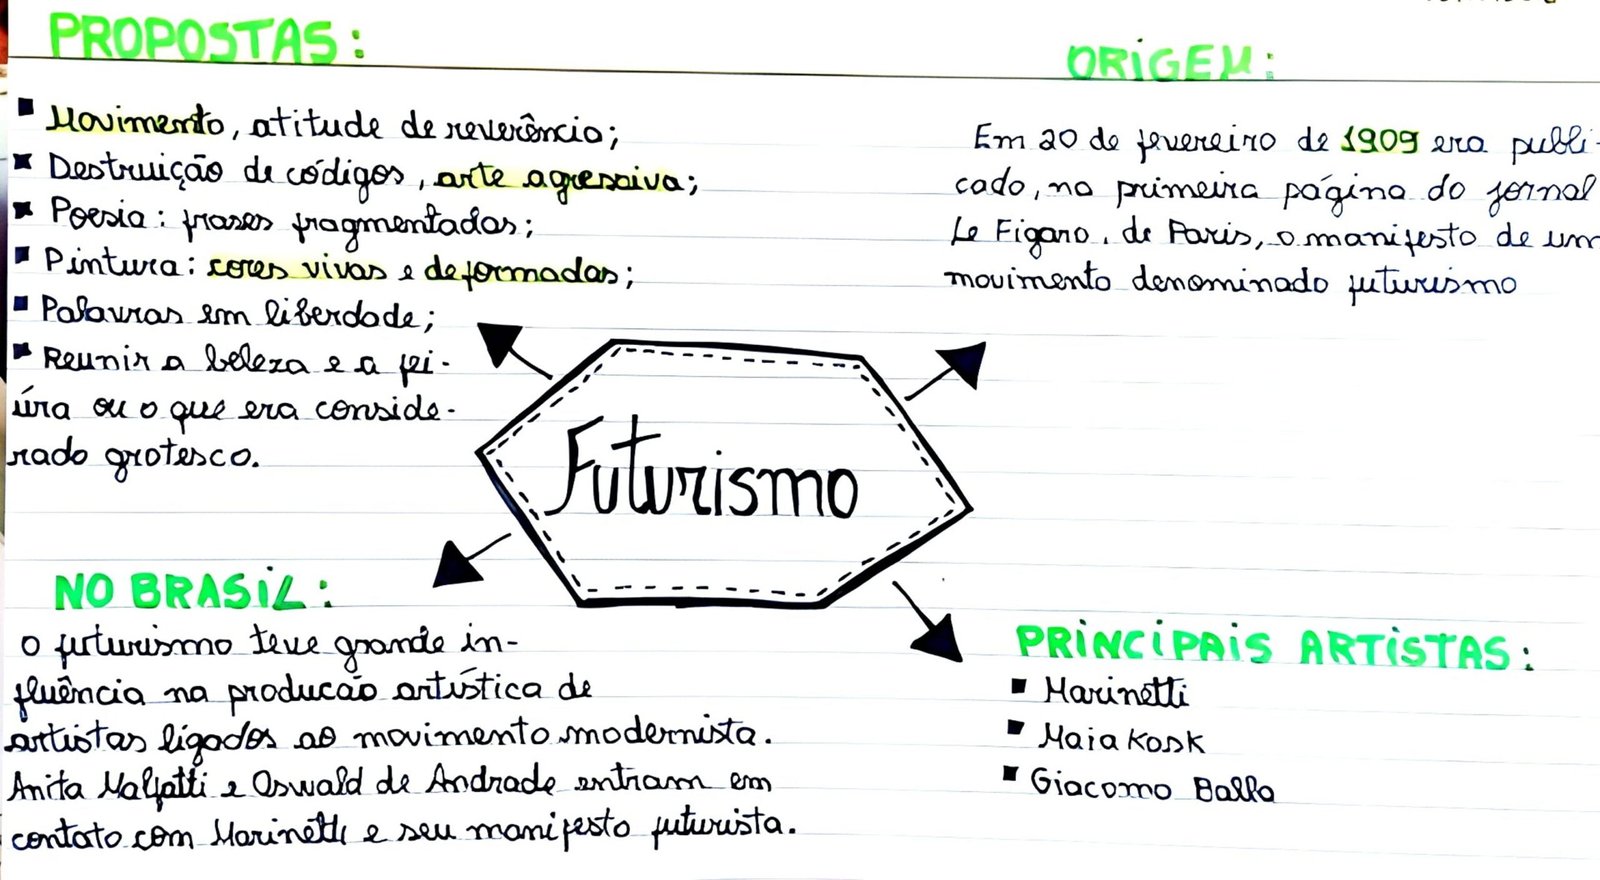 PROPOSTAS:
▪ Movimento, atitude de reverêncio;
▪ Destruição de códigos, arte agressiva;
▪ Poesia: frases fragmentadas;
▪ Pintura: cores vivas e deformadas;
▪ Palavras em liberdade;
▪ Reunir a beleza e a fei-
úra ou o que era conside-
rado grotesco.
ORIGEM:
Em 20 de fevereiro de 1909 era publi-
cado, na primeira página do jornal
Le Figaro, de Paris, o manifesto de um
movimento denominado futurismo
Futurismo
NO BRASIL:
O futurismo teve grande in-
fluência na producão artística de
artistas ligados ao movimento modernista.
Anita Malfatti e Oswald de Andrade entram em
contato com Marinetti e seu manifesto futurista.
PRINCIPAIS ARTISTAS:
▪ Marinetti
▪ Maiakosk
▪ Giacomo Balla